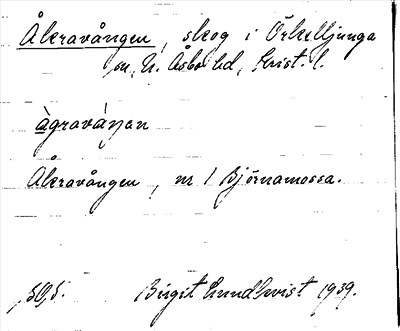 Åkravången, skog i Örkelljunga
sn, N. Åsbo hd, Krist. l.
àgraváŋen
Åkravången, nr 1 Björnamossa.
Birgit Lundqvist 1939.